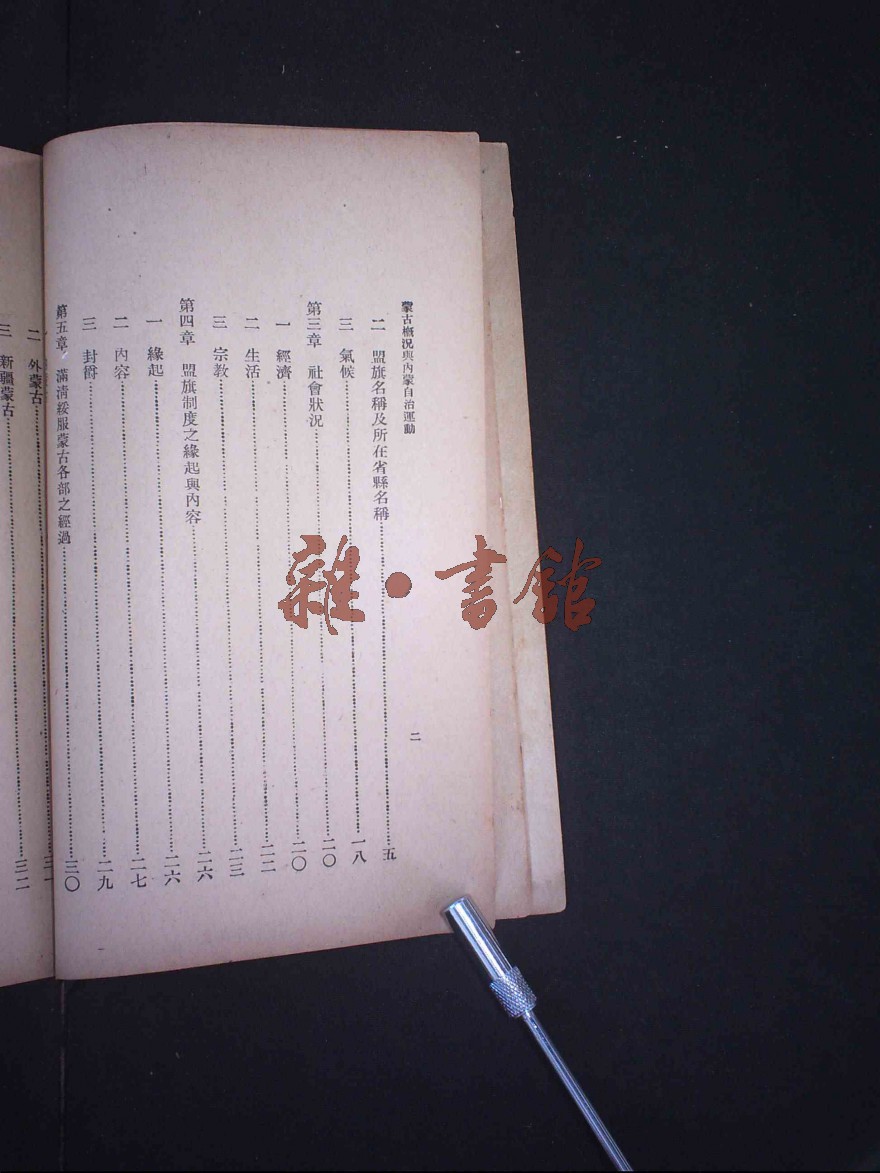 蒙古概况與內蒙自治運動
二
二 盟旗名稱及所在省縣名稱……五
三 氣候……一八
第三章 社會狀况……二〇
一 經濟……二〇
二 生活……二二
三 宗教……二三
第四章 盟旗制度之緣起與內容……二六
一 緣起……二六
二 內容……二七
三 封爵……二九
第五章 滿清綏服蒙古各部之經過……三〇
二 外蒙古……三一
三 新疆蒙古……三二
雜·書館